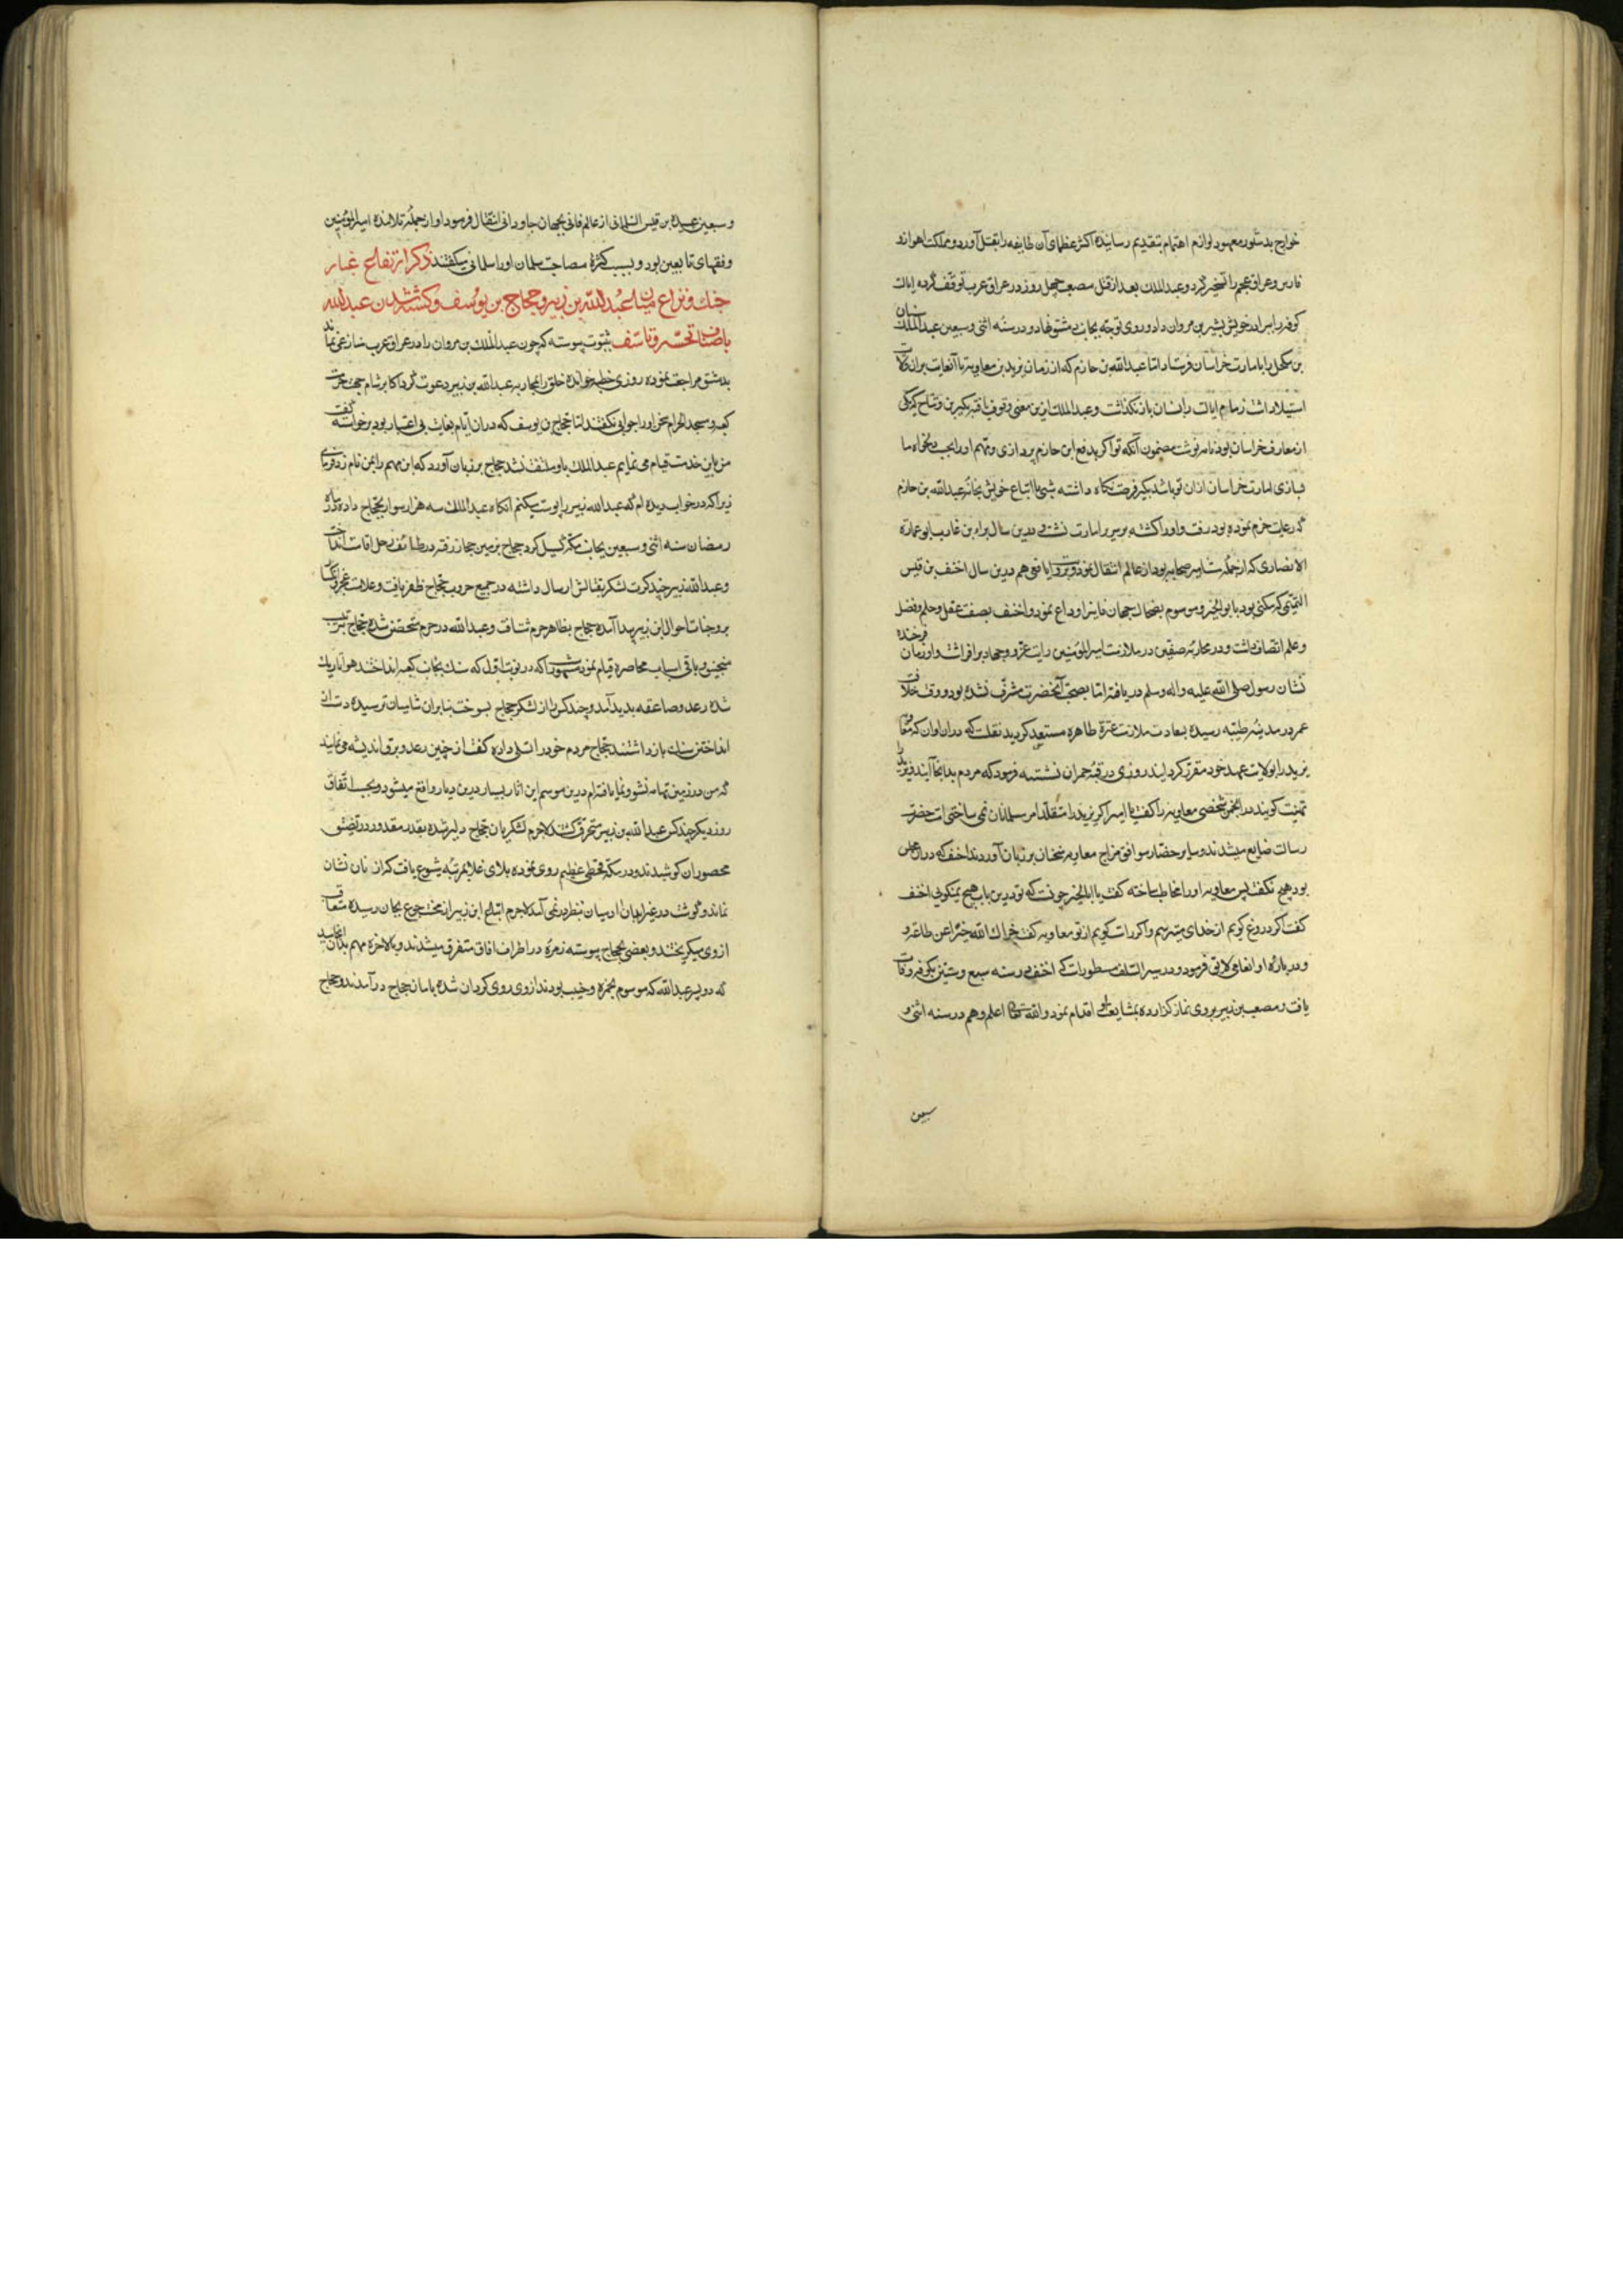 خوارج بدستور معهود لوازم اهتمام بتقدیم رسانیده اکثر عظمای آن طایفه را بقتل آورد و مملکت اهواز و
فارس و عراق عجم را تسخیر کرد و عبدالملک بعد از قتل مصعب چهل روز در عراق عرب توقف کرده ایالت
کوفه را ببرادر خویش بشیر بن مروان داد و روی توجه بجانب دمشق نهاد و در سنه اثنی و سبعین عبدالملک
بن را بامارت خراسان فرستاد اما عبدالله بن حازم که از زمان یزید بن معاویه تا آنغایت بران ولایت
استیلا داشت زمام ایالت را بایشان باز نگذاشت و عبدالملک ازین معنی وقوف یافته ببکیر بن وشاح که یکی
از معارف خراسان بود نامه نوشت مضمون آنکه تو اگر بدفع ابن حازم پردازی و مهم او را بحسب دلخواه ما
بسازی امارت خراسان ازان تو باشد بکیر فرصت نگاه داشته شبی با اتباع خویش بخانه عبدالله بن حازم
که رعایت حزم نموده بود رفت و او را کشته بر سریر امارت نشست و درین سال براء بن عازب ابو عماره
الانصاری که از جمله مشاهیر صحابه بود از عالم انتقال نمود و هم درین سال احنف بن قیس
التمیمی که مکنی بود بابو البحر و موسوم بضحاک جهان فانی را وداع نمود و احنف بصفت عقل و حلم و فضل
و علم اتصاف داشت و در محاربه صفین در ملازمت امیرالمؤمنین رایت غزو و جهاد برافراشت و او زمان فرخنده
نشان رسول صلی الله علیه و اله و سلم دریافته اما بصحبت آنحضرت مشرف نشده بود و وقت خلافت
عمر در مدینه طیبه رسیده بسعادت ملازمت عترة طاهره مستسعد گردید نقلست که دران اوان که معاویه
یزید را بولایت عهد خود مقرر گردانید روزی در قبه حمران نشسته فرمود که مردم بدانجا آیند و یزید را
تهنیت گویند در انجمن شخصی معاویه را گفت یا امیر اگر یزید را متقلد امر مسلمانان نمی ساختی امت حضرت
رسالت ضایع میشدند و سایر حضار موافق مزاج معاویه سخنان بر زبان آوردند احنف که دران مجلس
بود هیچ نگفت پس معاویه او را مخاطب ساخته گفت یا ابا البحر چونست که تو درین باب هیچ نمیگویی احنف
گفت اگر دروغ گویم از خدای میترسم و اگر راست گویم از تو معاویه گفت جزاک الله خیرا عن طاعته و
و درباره او انعامی لایق فرمود و در سیر السلف مسطورست که احنف در سنه سبع و ستین بکوفه وفات
یافت و مصعب بن زبیر بر وی نماز گزارده بمشایعت اقدام نمود والله تعالی اعلم و هم در سنه اثنی و
سبعین
و سبعین عبیده بن قیس السلمانی از عالم فانی بجهان جاودانی انتقال فرمود او از جمله تلامذه امیرالمؤمنین
و فقهای تابعین بود و بسبب کثرة مصاحبت سلمان او را سلمانی میگفتند ذکر ارتفاع غبار
جنک و نزاع میان عبدالله بن زبیر و حجاج بن یوسف و کشته شدن عبدالله
باصناف تحسر و تاسف بثبوت پیوسته که چون عبدالملک بن مروان را در عراق عرب منازعی نماند
بدمشق مراجعت نموده روزی خطبه خوانده خلق را بمحاربه عبدالله بن زبیر دعوت کرد اکابر شام بجهت حرمت
کعبه و مسجد الحرام سخن او را جوابی نگفتند اما حجاج بن یوسف که دران ایام بغایت بی اعتبار بود برخواسته گفت
من باین خدمت قیام می نمایم عبدالملک باو ملتفت نشد حجاج بر زبان آورد که این مهم را بمن نامزد فرمای
زیرا که در خواب دیده ام که عبدالله زبیر را پوست میکنم انگاه عبدالملک سه هزار سوار بحجاج داده در ماه
رمضان سنه اثنی و سبعین بجانب مکه گسیل کرد حجاج بزمین حجاز رفته در طائف رحل اقامت انداخت
و عبدالله زبیر چند کرت لشکر بقتالش ارسال داشته در جمیع حروب حجاج ظفر یافت و علامت عجز و انکسار
بر وجنات احوال ابن زبیر پیدا آمده حجاج بظاهر حرم شتافت و عبدالله در حرم متحصن شده حجاج بترتیب
منجنیق و باقی اسباب محاصره قیام نمود مشهور است که در نوبت اول که سنک بجانب کعبه انداختند هوا تاریک
شده رعد و صاعقه پدید آمد و چند کس را از لشکر حجاج بسوخت بنابران شامیان ترسیده دست از
انداختن سنک باز داشتند حجاج مردم خود را تسلی داده گفت از چنین رعد و برق اندیشه می نمایند
که من در زمین تهامه نشو و نما یافته ام درین موسم این آثار بسیار درین دیار واقع میشود و بحسب اتفاق
روز دیگر چند کس عبدالله بن زبیر محترق گشتند لاجرم لشکریان حجاج دلیر شده بقدر مقدور در تضییق
محصوران کوشیدند و در مکه قحطی عظیم روی نموده بلای غلا بمرتبه شیوع یافت که از نان نشان
نماند و گوشت در غیر ابدان ادمیان بنظر در نمی آمد لاجرم اتباع ابن زبیر از محنت جوع بجان رسیده متعاقب
از وی میگریختند و بعضی بحجاج پیوسته زمره در اطراف افاق متفرق میشدند و بالاخره مهم بدان انجامید
که دو پسر عبدالله که موسوم بحمزه و خبیب بودند از وی روی گردان شده بامان حجاج درآمدند و حجاج